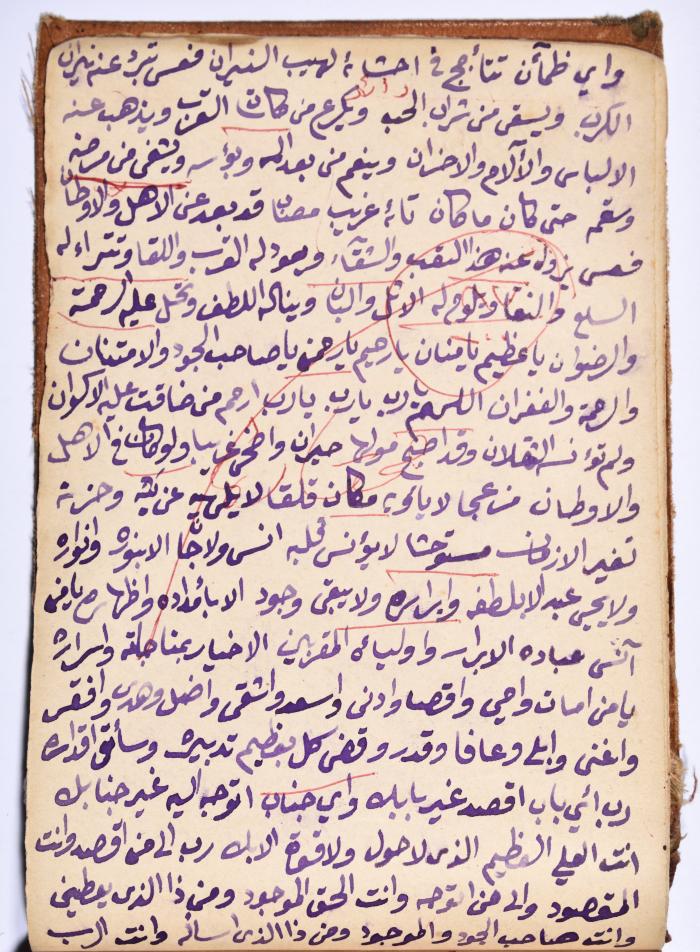 واي ظمآن تتأجج في احشائه لهيب النيران فعسى تبرد عنه نيران
الكرب ويسقى من شراب الحب ويكرع من كاسات القرب ويذهب عنه
الالباس والآلام والاحزان وينعم من بعد المه وبؤسه ويشفى من مرضه
وسقمه حتى كان ما كان تائه غريب مصاب قد بعد عن الاهل والاوطان
فعسى يزول عنه هذا التعب والشقاء ويعود له القرب واللقا وتتراء له
السلع والنقا ويلوح له الاثل والبان ويناله اللطف وتحل عليه الرحمة
والرضوان يا عظيم يا منان يا رحيم يا رحمن يا صاحب الجود والامتنان
والرحمة والغفران اللهم يا رب يا رب يا رب ارحم من ضاقت عليه الاكوان
ولم تؤنسه الثقلان وقد اصبح مولها حيران واضحى غريبا ولو كان في الاهل
والاوطان مزعجا لا ياويه مكان قلقا لا يلهيه عن بثه وحزنه
تغير الازمان مستوحشا لا يؤنس قلبه انس ولا جان الا بنوره وانواره
ولا يحيى عبد الا بلطفه وابراره ولا يبقى وجود الا بامداده واظهاره يا من
آنس عباده الابرار واوليائه المقربين الاخيار بمناجاته واسراره
يا من امات واحي واقصا وادنى واسعد واشقى واضل وهدى وافقر
واغنى وابلى وعافا وقدر وقضى كل بعظيم تدبيره وسابق اقداره
رب ائي باب اقصد غير بابك واي جناب اتوجه اليه غير جنابك
انت العلي العظيم الذي لا حول ولا قوة الا بك رب الى من اقصد وانت
المقصود والى من اتوجه وانت الحق الموجود ومن ذا الذى يعطيني
وانت صاحب الجود والموجود ومن ذا الذى اسأله وانت الرب